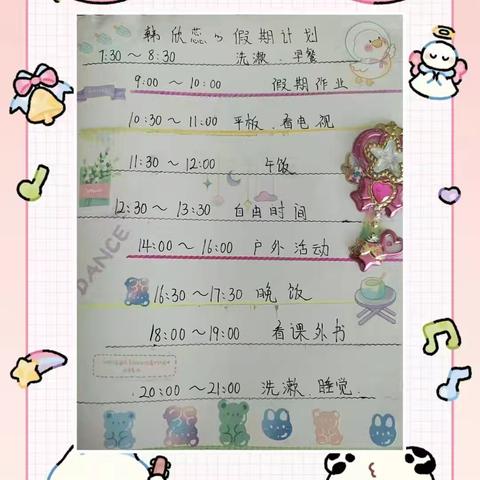 韩欣蕊の假期计划
7:30～8:30 洗漱、早餐
9:00～10:00 假期作业
10:30～11:00 平板、看电视
11:30～12:00 午饭
12:30～13:30 自由时间
14:00～16:00 户外活动
DANCE
16:30～17:30 晚饭
18:00～19:00 看课外书
20:00～21:00 洗漱、睡觉.